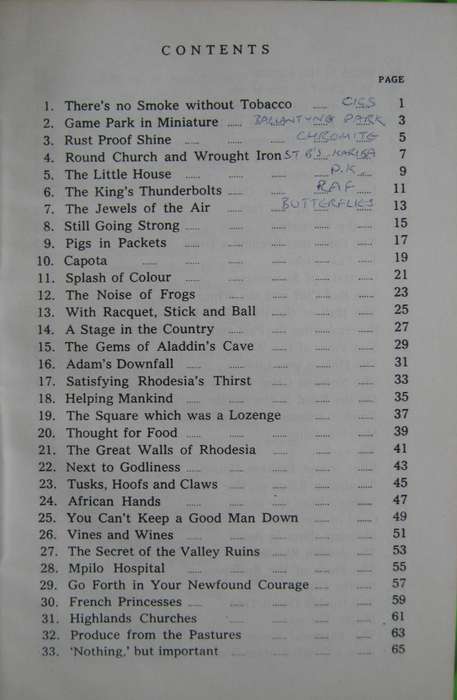 CONTENTS
PAGE
1. There's no Smoke without Tobacco ...... CIGS 1
2. Game Park in Miniature ...... BALLANTYNE PARK 3
3. Rust Proof Shine ...... ...... CHROMITE 5
4. Round Church and Wrought Iron ST B'S KARIBA 7
5. The Little House ...... ...... P.K. 9
6. The King's Thunderbolts ...... ...... RAF 11
7. The Jewels of the Air ...... BUTTERFLIES 13
8. Still Going Strong ...... ...... ...... ...... 15
9. Pigs in Packets ...... ...... ...... ...... 17
10. Capota ...... ...... ...... ...... ...... 19
11. Splash of Colour ...... ...... ...... ...... 21
12. The Noise of Frogs ...... ...... ...... ...... 23
13. With Racquet, Stick and Ball ...... ...... ...... 25
14. A Stage in the Country ...... ...... ...... ...... 27
15. The Gems of Aladdin's Cave ...... ...... ...... 29
16. Adam's Downfall ...... ...... ...... ...... ...... 31
17. Satisfying Rhodesia's Thirst ...... ...... ...... 33
18. Helping Mankind ...... ...... ...... ...... ...... 35
19. The Square which was a Lozenge ...... ...... 37
20. Thought for Food ...... ...... ...... ...... ...... 39
21. The Great Walls of Rhodesia ...... ...... ...... 41
22. Next to Godliness ...... ...... ...... ...... ...... 43
23. Tusks, Hoofs and Claws ...... ...... ...... ...... 45
24. African Hands ...... ...... ...... ...... ...... 47
25. You Can't Keep a Good Man Down ...... ...... 49
26. Vines and Wines ...... ...... ...... ...... ...... 51
27. The Secret of the Valley Ruins ...... ...... ...... 53
28. Mpilo Hospital ...... ...... ...... ...... ...... 55
29. Go Forth in Your Newfound Courage ...... ...... 57
30. French Princesses ...... ...... ...... ...... ...... 59
31. Highlands Churches ...... ...... ...... ...... 61
32. Produce from the Pastures ...... ...... ...... 63
33. 'Nothing,' but important ...... ...... ...... ...... 65